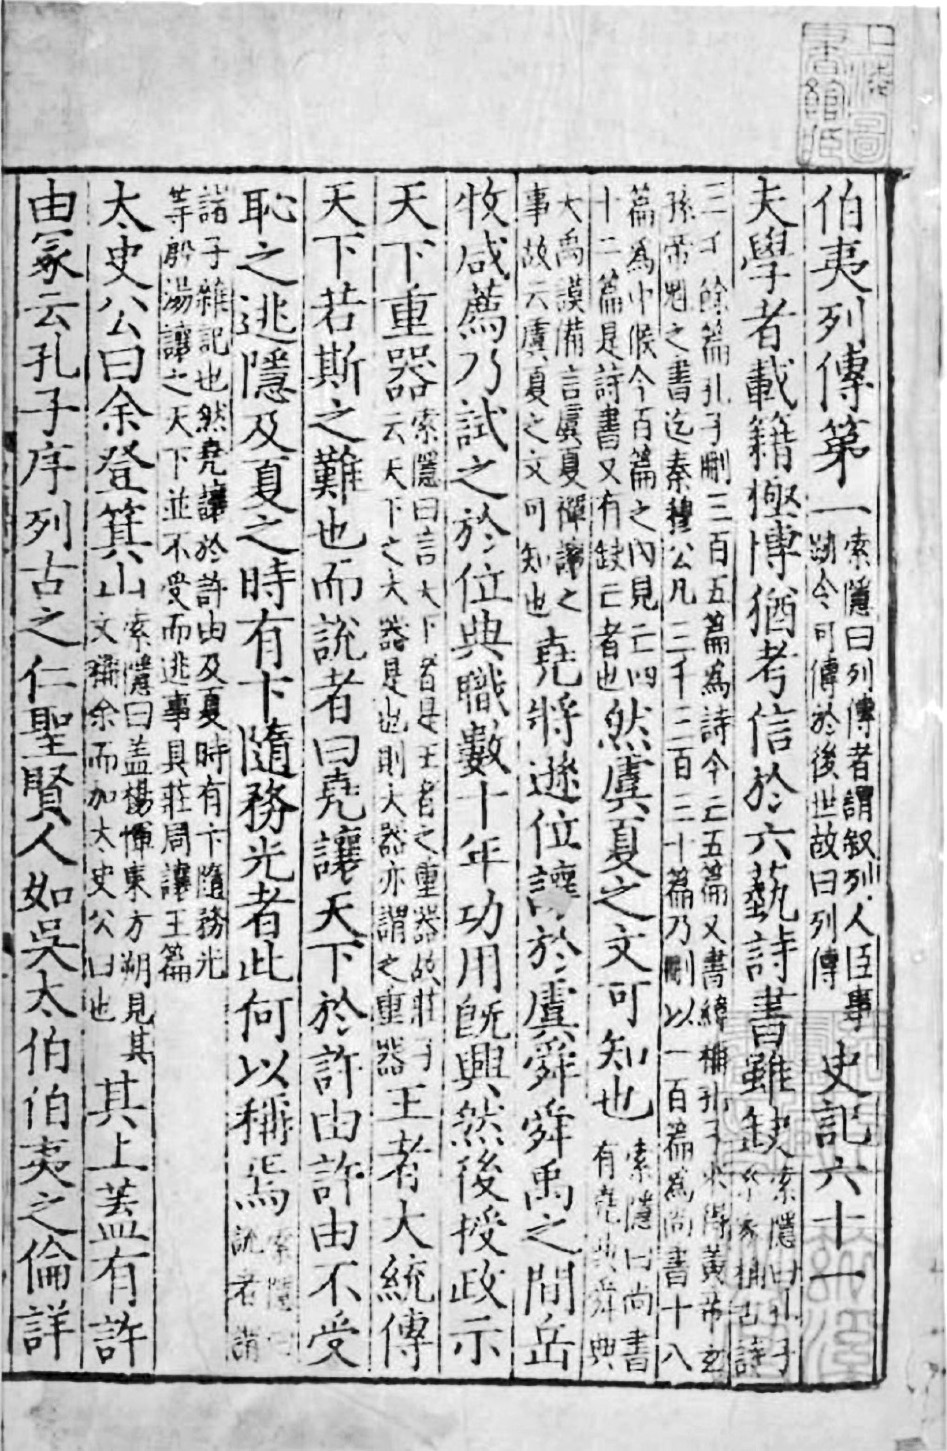 伯夷列傳第一索隱曰列傳者謂叙列人臣事跡令可傳於後世故曰列傳史記六十一
夫學者載籍極博猶考信於六藝詩書雖缺索隱曰孔子系家稱古詩
三千餘篇孔子刪三百五篇為詩今亡五篇又書緯稱孔子求得黃帝玄孫帝魁之書迄秦穆公凡三千三百三十篇乃刪以一百篇為尚書十八
篇為中候今百篇之內見亡四十二篇是詩書又有缺亡者也然虞夏之文可知也索隱曰尚書有堯典舜典
大禹謨備言虞夏禪讓之事故云虞夏之文可知也堯將遜位讓於虞舜舜禹之間岳
牧咸薦乃試之於位典職數十年功用旣興然後授政示
天下重器索隱曰言天下者是王者之重器故莊子云天下之大器是也則大器亦謂之重器王者大統傳
天下若斯之難也而說者曰堯讓天下於許由許由不受
恥之逃隱及夏之時有卞隨務光者此何以稱焉索隱曰說者謂
諸子雜記也然堯讓於許由及夏時有卞隨務光等殷湯讓之天下並不受而逃事具莊周讓王篇
太史公曰余登箕山索隱曰蓋楊惲東方朔見其上文稱余而加太史公曰也其上蓋有許
由冢云孔子序列古之仁聖賢人如吳太伯伯夷之倫詳
上海圖書館臧